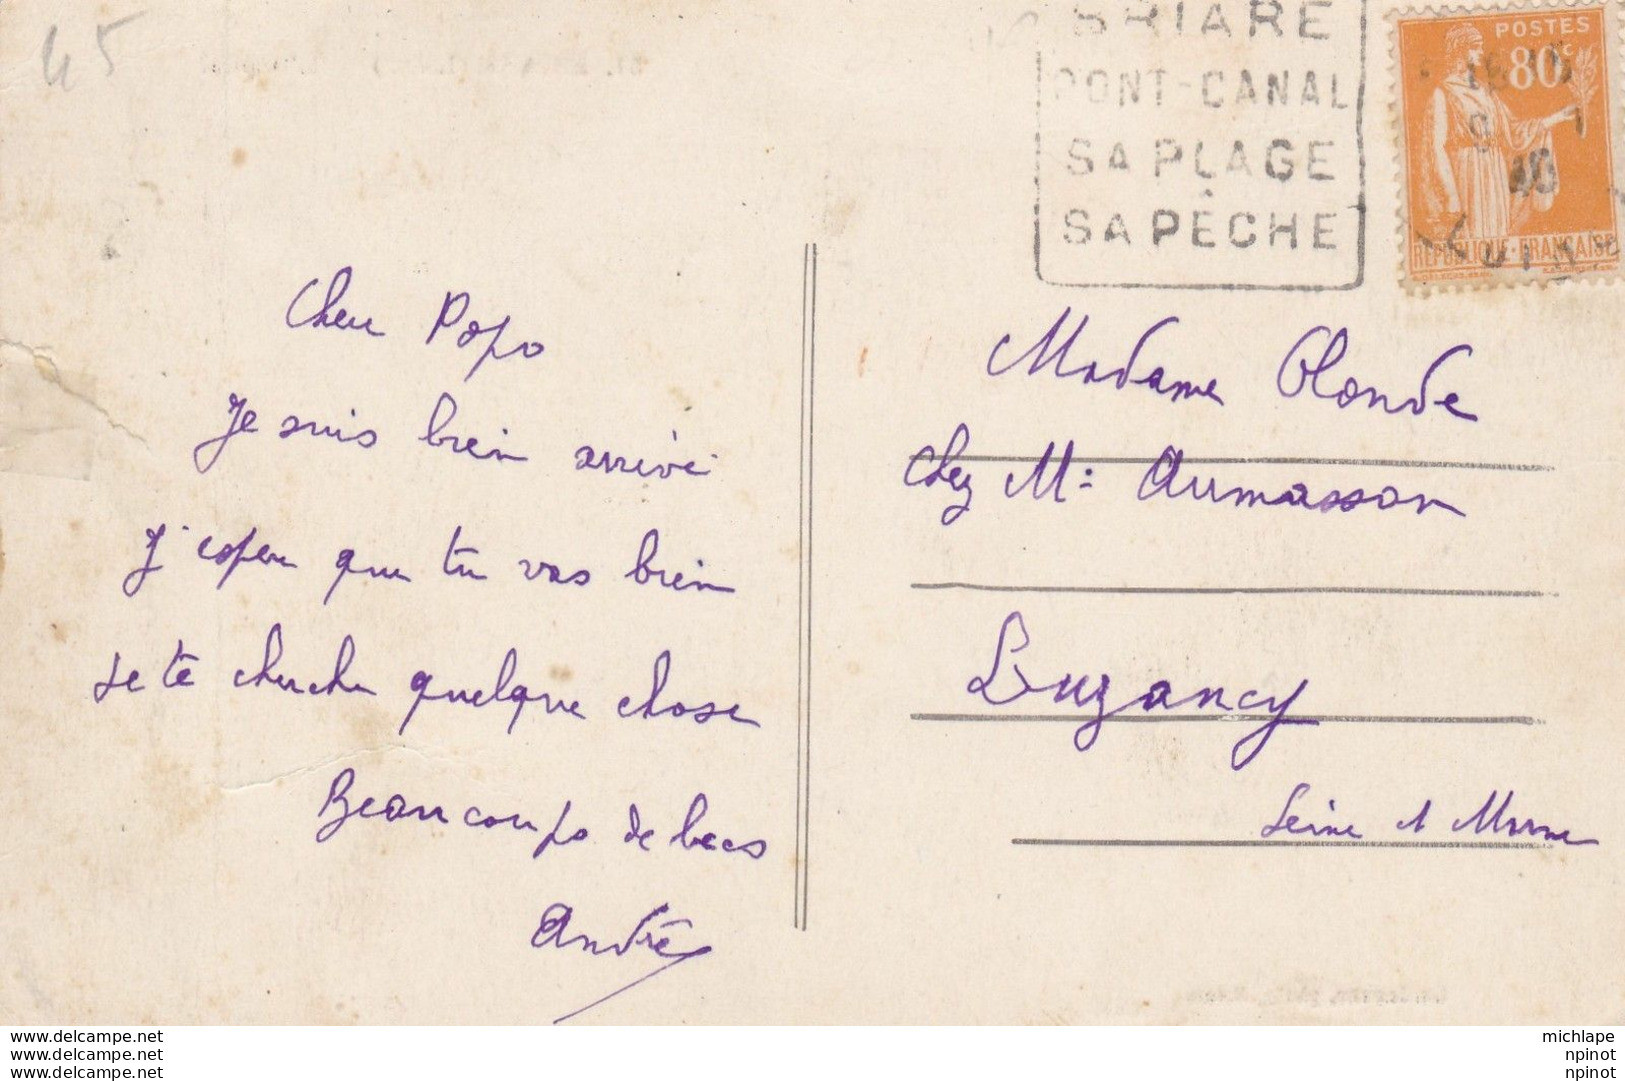 45
BRIARE
PONT-CANAL
SA PLAGE
SA PÊCHE
POSTES
80c
40
REPUBLIQUE-FRANÇAISE
Cher Popo
Je suis bien arrivé
J'espere que tu vas bien
Je te cherche quelque chose
Beaucoup de becs
André
Madame Olonde
chez Mr Aumasson
Luzancy
Seine et Marne
www.delcampe.net
www.delcampe.net
www.delcampe.net
michlape
npinot
npinot